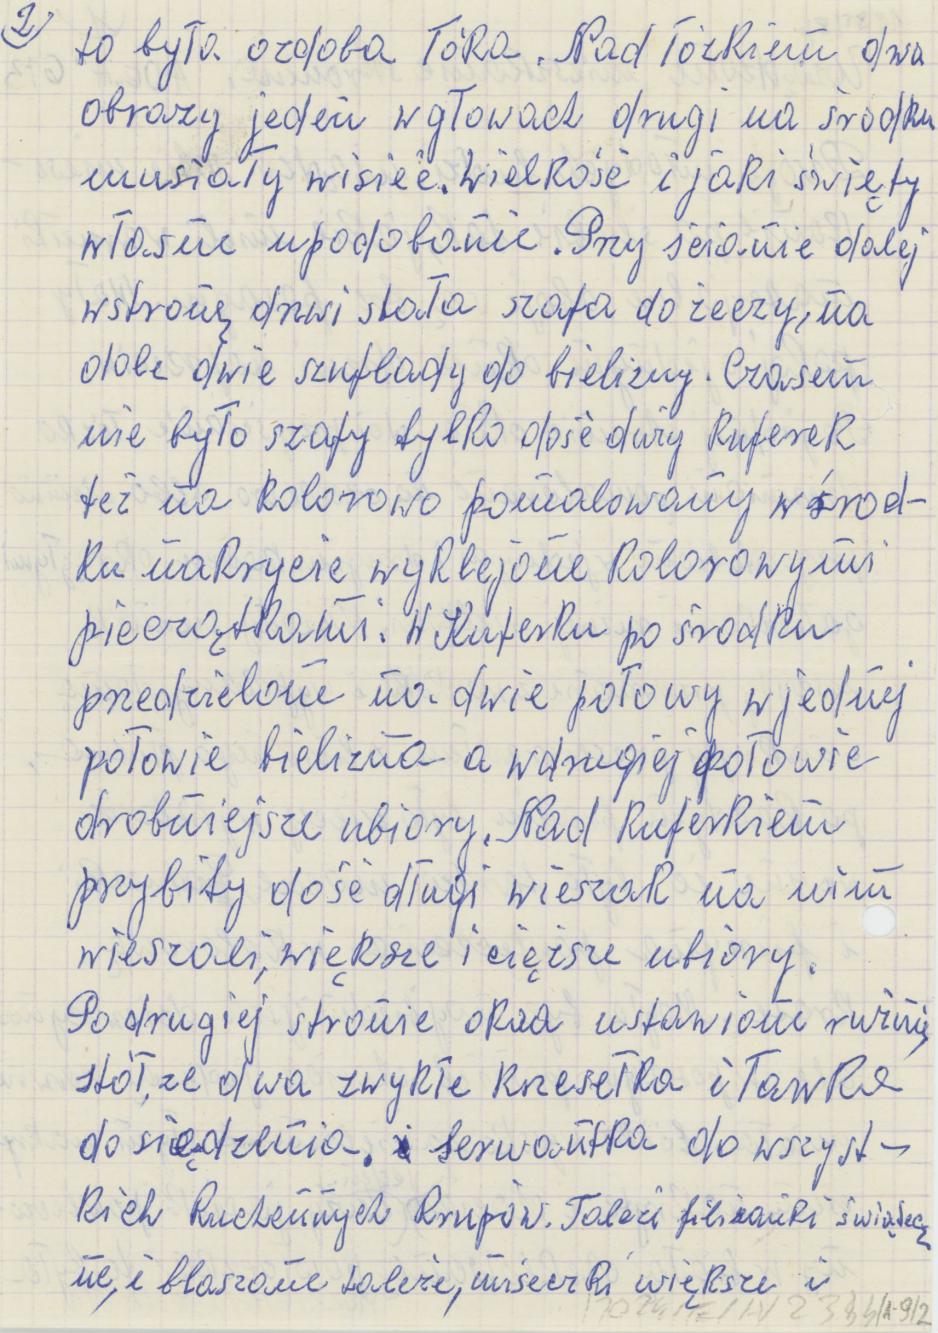 2)
to była ozdoba łóka. Nad łózkiem dwa
obrazy jeden wgłowach drugi na środku
musiały wisieć. Wielkość i jaki święty
własne upodobanie. Przy ścianie dalej
wstronę drzwi stała szafa do żeczy, na
dole dwie szuflady do bielizny. Czasem
nie było szafy tylko dość duży kuferek
też na kolorowo pomalowany w środ-
ku nakrycie wyklejone kolorowymi
pieczątkami. W Kuferku po środku
przedzielone na dwie połowy w jednej
połowie bielizna a wdrugiej połowie
drobniejsze ubiory. Nad kuferkiem
przybity dość długi wieszak na nim
wieszali, większe i cięższe ubiory.
Podrugiej stronie okna ustawione
stół, ze dwa zwykłe krzesełka i ławka
dosiędzenia. i serwantka do wszyst-
kich kuchennych krupów. Tależe filiżanki świątecz
ne, i blaszane tależe, miseczki większe i